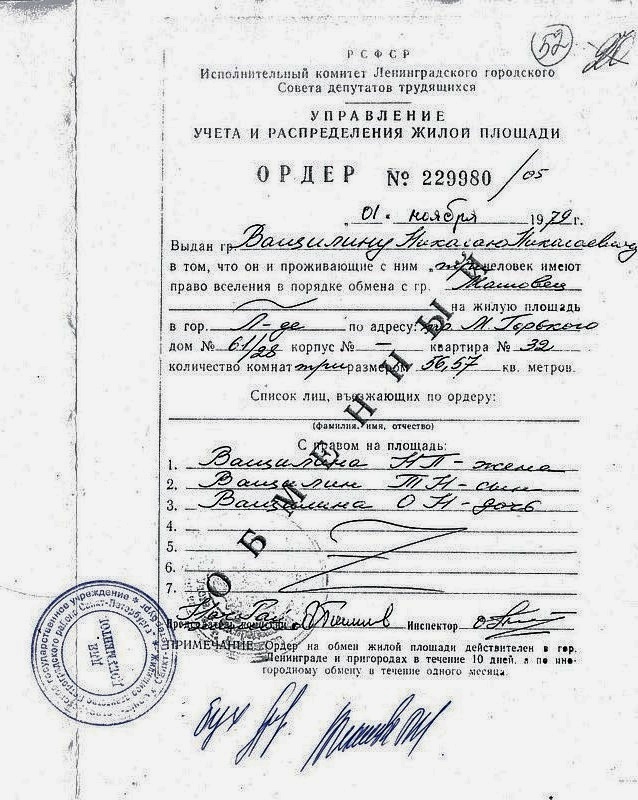 52
РСФСР
Исполнительный комитет Ленинградского городского
Совета депутатов трудящихся
УПРАВЛЕНИЕ
УЧЕТА И РАСПРЕДЕЛЕНИЯ ЖИЛОЙ ПЛОЩАДИ
ОРДЕР № 229980/05
„01" ноября 1979 г.
Выдан гр. Ващилину Николаю Николаевичу
в том, что он и проживающие с ним „три" человек имеют
право вселения в порядке обмена с гр. Маховец
на жилую площадь
в гор. Л-де по адресу: пр. М. Горького
дом № 61/28 корпус № — квартира № 32
количество комнат три размером 56,57 кв. метров.
Список лиц, въезжающих по ордеру:
(фамилия, имя, отчество)
С правом на площадь:
1. Ващилина НП - жена
2. Ващилин ТН - сын
3. Ващилина О Н - дочь
4.
5.
6.
7.
ОБМЕННЫЙ
Председатель комиссии Инспектор
ПРИМЕЧАНИЕ. Ордер на обмен жилой площади действителен в гор.
Ленинграде и пригородах в течение 10 дней, а по ино-
городному обмену в течение одного месяца.
ДЛЯ ДОКУМЕНТОВ